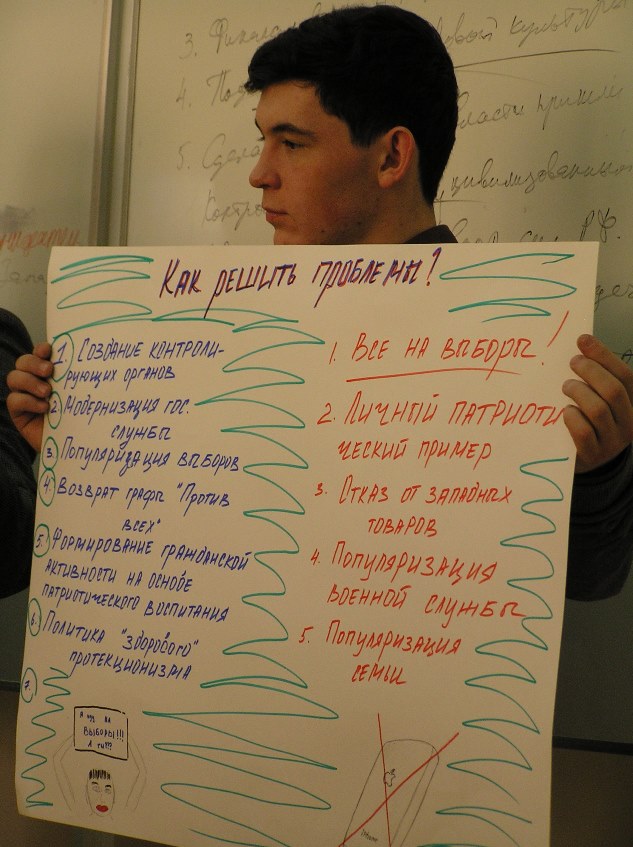 3.
4.
5.
цивилизованн
КАК РЕШИТЬ ПРОБЛЕМЫ?
1. СОЗДАНИЕ КОНТРОЛИ-
РУЮЩИХ ОРГАНОВ
2. МОДЕРНИЗАЦИЯ ГОС.
СЛУЖБЫ
3. ПОПУЛЯРИЗАЦИЯ ВЫБОРОВ
4. ВОЗВРАТ ГРАФЫ "ПРОТИВ
ВСЕХ"
5. ФОРМИРОВАНИЕ ГРАЖДАНСКОЙ
АКТИВНОСТИ НА ОСНОВЕ
ПАТРИОТИЧЕСКОГО ВОСПИТАНИЯ
6. ПОЛИТИКА "ЗДОРОВОГО"
ПРОТЕКЦИОНИЗМА
7.
Я иду НА
ВЫБОРЫ!!!
А ты???
1. ВСЕ НА ВЫБОРЫ!
2. ЛИЧНЫЙ ПАТРИОТИ
ЧЕСКИЙ ПРИМЕР
3. ОТКАЗ ОТ ЗАПАДНЫХ
ТОВАРОВ
4. ПОПУЛЯРИЗАЦИЯ
ВОЕННОЙ СЛУЖБЫ
5. ПОПУЛЯРИЗАЦИЯ
СЕМЬИ